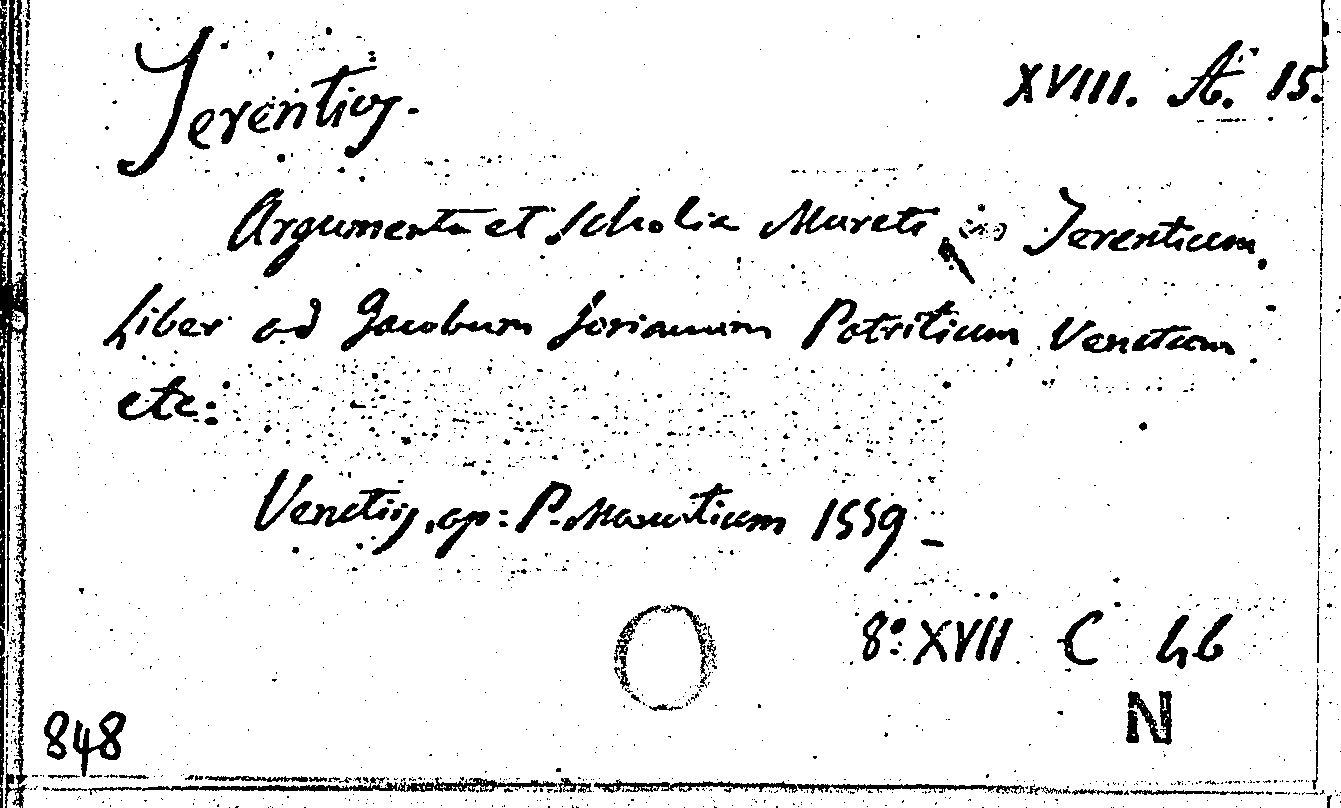 Terentius.
XVIII. A. 15.
Argumenta et Scholia Mureti in Terentium.
Liber ad Jacobum Sorianum Patritium Venetum.
etc:
Venetijs, ap: P. Manutium 1559 -
8º XVII C 46
N
848